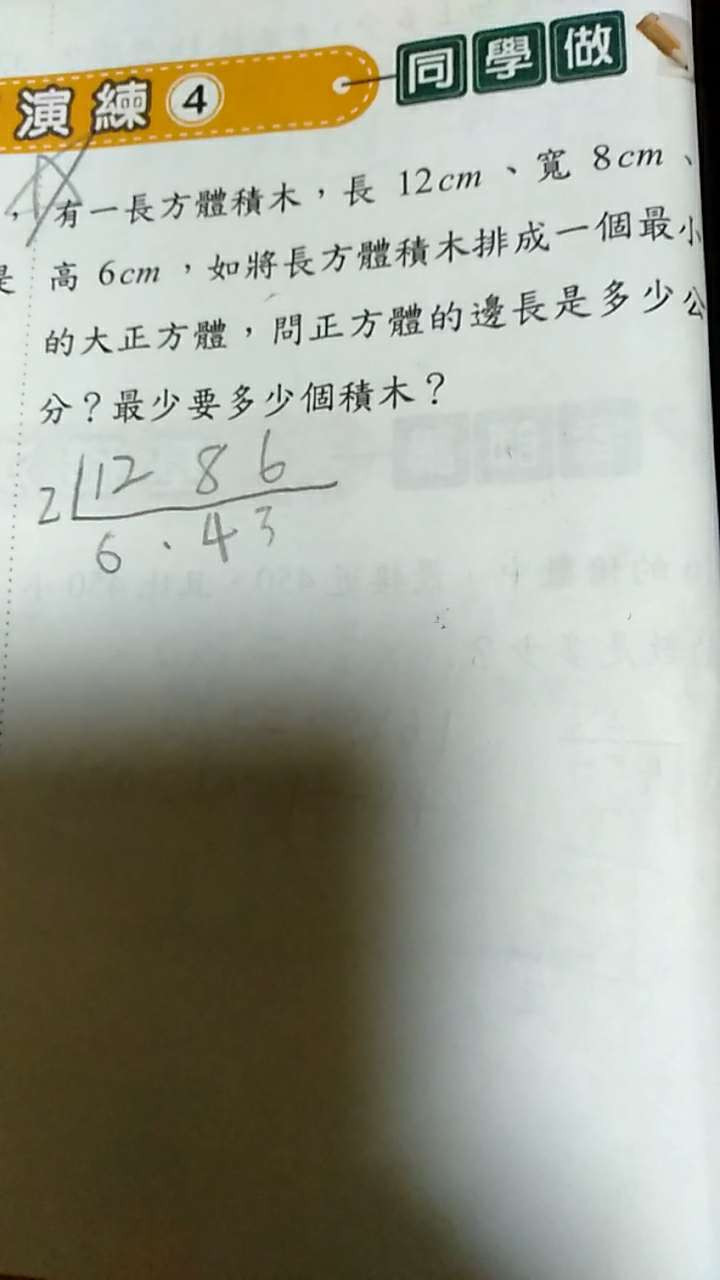 演練4 同學做
，有一長方體積木，長 12cm、寬 8cm、
是 高 6cm，如將長方體積木排成一個最小
的大正方體，問正方體的邊長是多少公
分？最少要多少個積木？
2 12 8 6
6 . 4 3